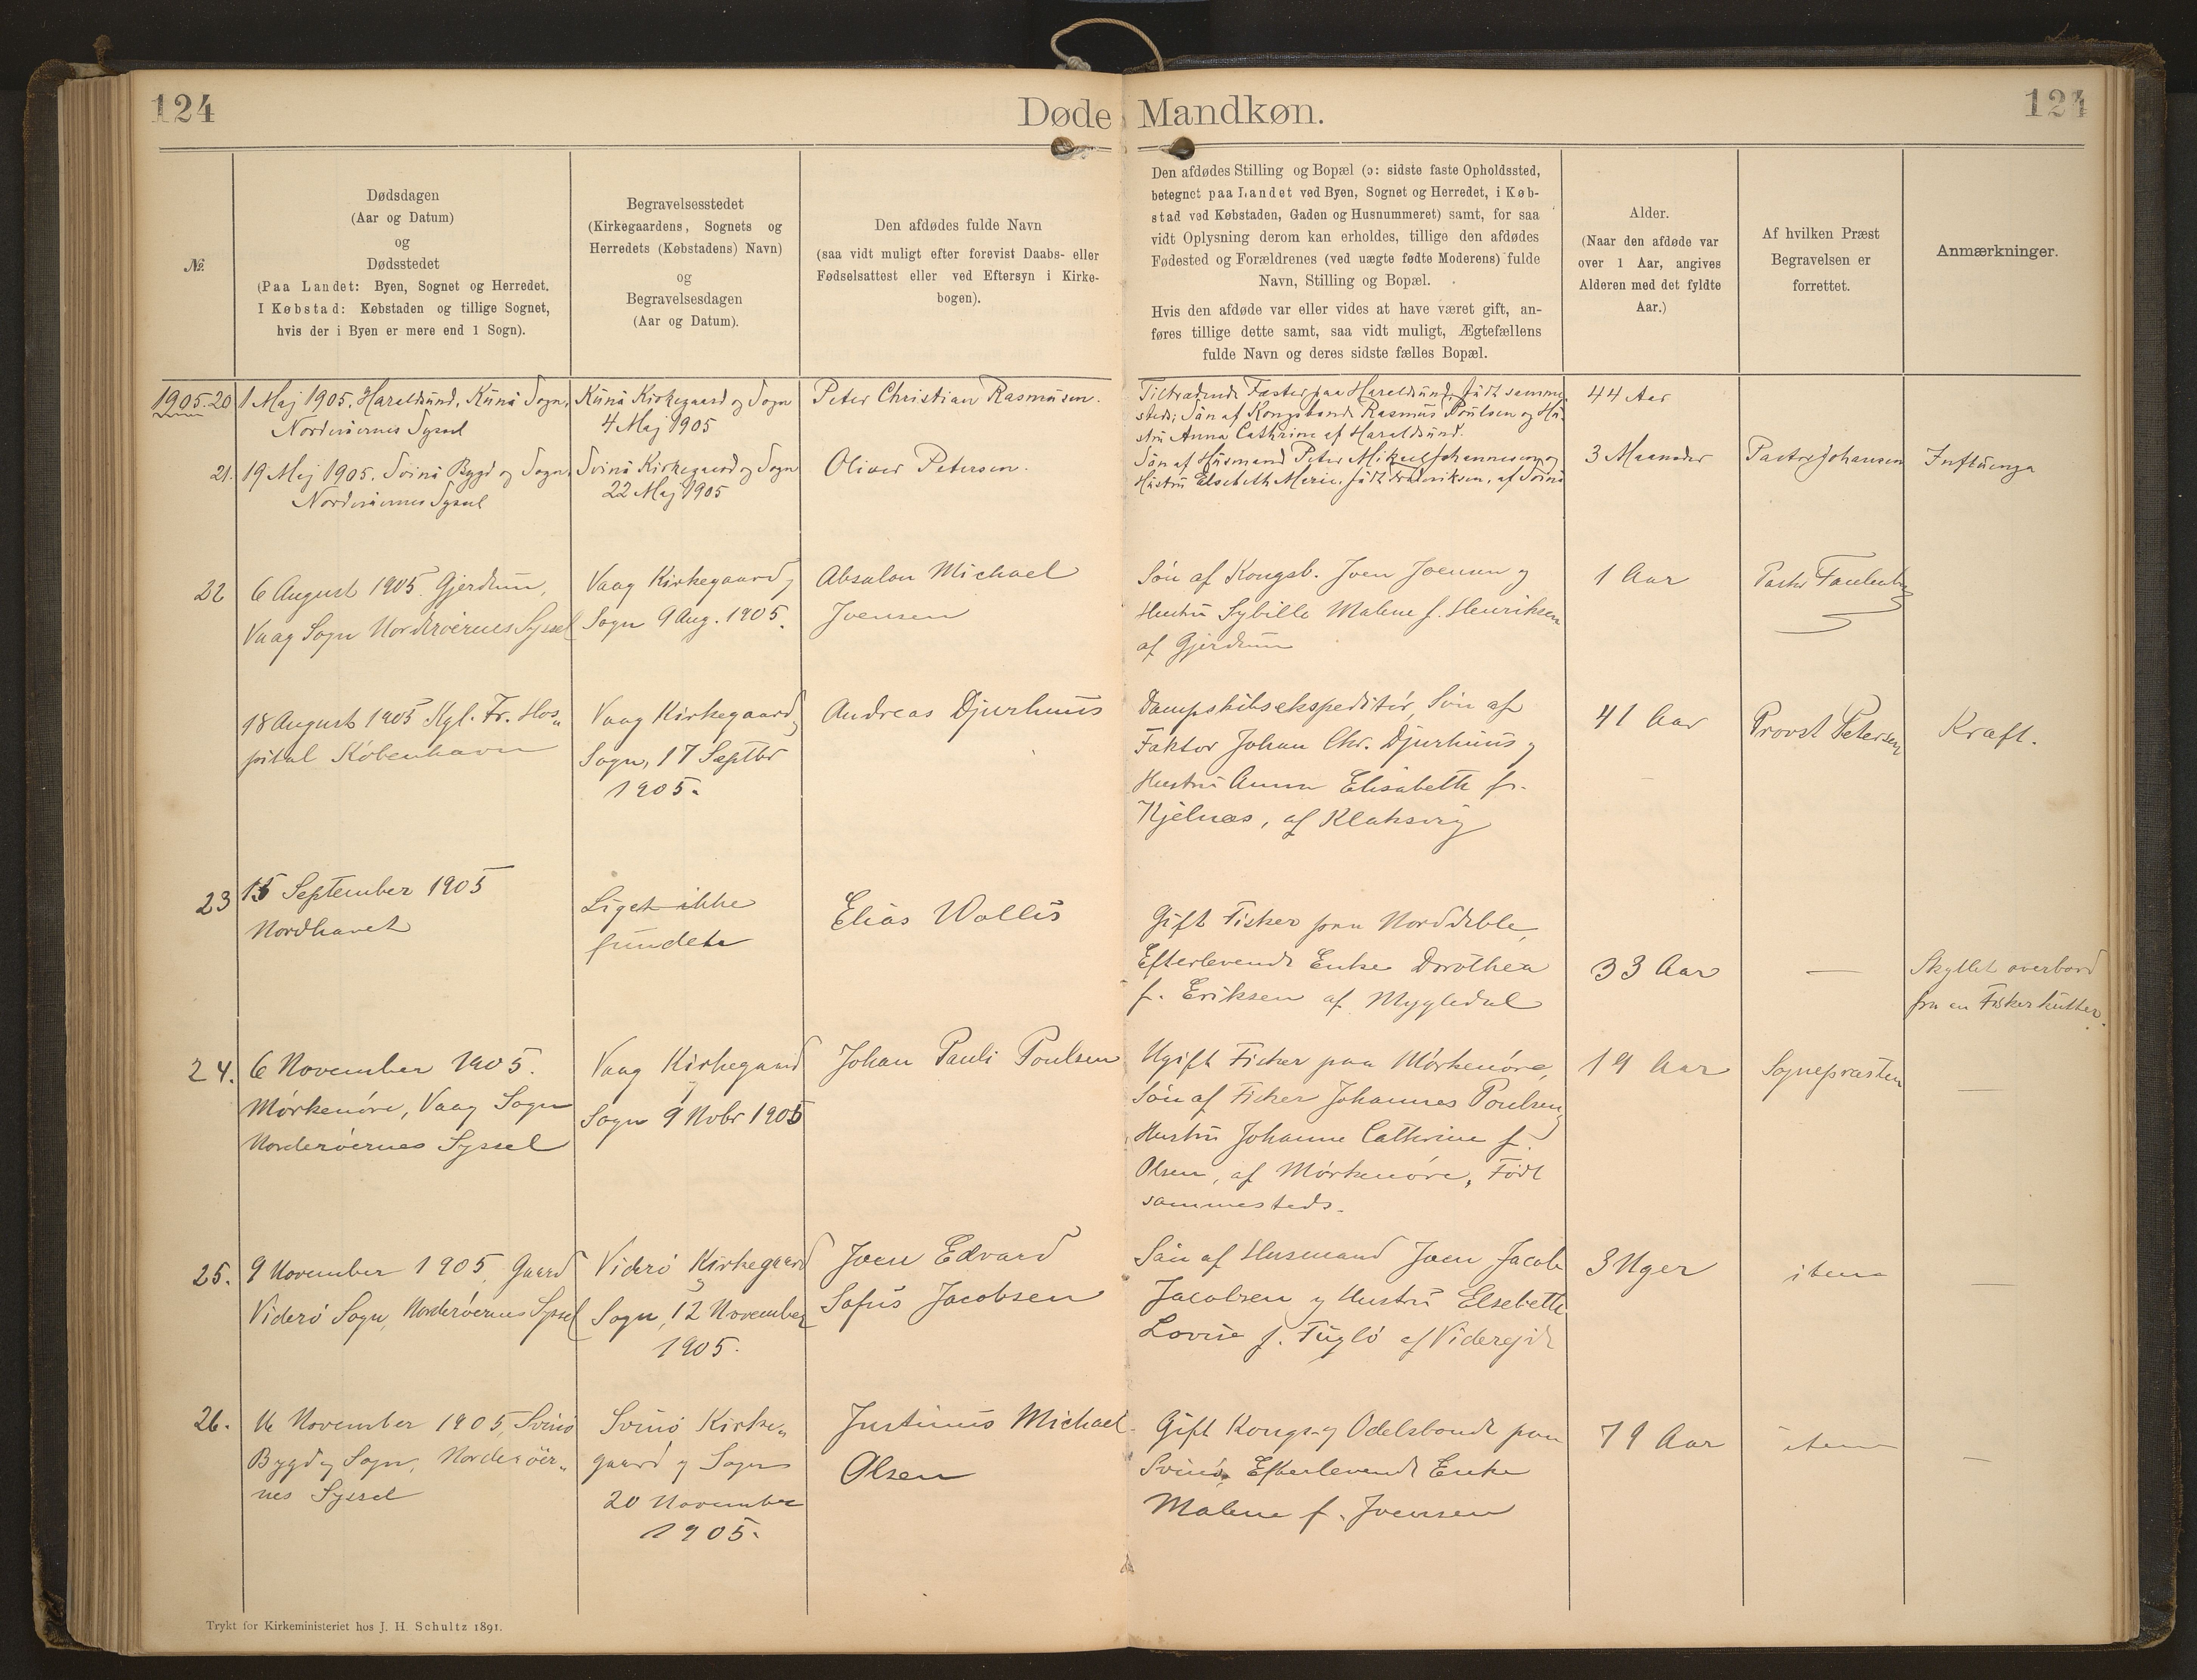 124
Døde Mandkøn.
124
№
Dødsdagen
(Aar og Datum)
og
Dødsstedet
(Paa Landet: Byen, Sognet og Herredet.
I Købstad: Købstaden og tillige Sognet,
hvis der i Byen er mere end 1 Sogn).
Begravelsesstedet
(Kirkegaardens, Sognets og
Herredets (Købstadens) Navn)
og
Begravelsesdagen
(Aar og Datum).
Den afdødes fulde Navn
(saa vidt muligt efter forevist Daabs- eller
Fødselsattest eller ved Eftersyn i Kirke-
bogen).
Den afdødes Stilling og Bopæl (ɔ: sidste faste Opholdssted,
betegnet paa Landet ved Byen, Sognet og Herredet, i Køb-
stad ved Købstaden, Gaden og Husnummeret) samt, for saa
vidt Oplysning derom kan erholdes, tillige den afdødes
Fødested og Forældrenes (ved uægte fødte Moderens) fulde
Navn, Stilling og Bopæl.
Hvis den afdøde var eller vides at have været gift, an-
føres tillige dette samt, saa vidt muligt, Ægtefællens
fulde Navn og deres sidste fælles Bopæl.
Alder.
(Naar den afdøde var
over 1 Aar, angives
Alderen med det fyldte
Aar.)
Af hvilken Præst
Begravelsen er
forrettet.
Anmærkninger.
1905. 20
1 Maj 1905. Haraldsund, Kunø Sogn,
Norderøernes Syssel
Kunø Kirkegaard og Sogn
4 Maj 1905
Peter Christian Rasmusen.
Tiltrædende Fæster paa Haraldsund, født samme-
steds; Søn af Kongsbonde Rasmus Poulsen og Hu-
stru Anna Cathrine af Haraldsund.
44 Aar
21.
19 Maj 1905. Svinø Bygd og Sogn,
Norderøernes Syssel
Svinø Kirkegaard og Sogn
22 Maj 1905
Oliver Petersen.
Søn af Husmand Peter Mikael Johannesen og
Hustru Elsebeth Marie, født Frederiksen, af Svinø
3 Maaneder
Pastor Johansen
Influenza
22
6 August 1905. Gjerdum,
Vaag Sogn Norderøernes Syssel
Vaag Kirkegaard og
Sogn 9 Aug. 1905.
Absalon Michael
Joensen
Søn af Kongsb. Joen Joensen og
Hustru Sybille Malene f. Henriksen
af Gjerdum
1 Aar
Pastor
18 August 1905 Kgl. Fr. Hos„
pital København
Vaag Kirkegaard og
Sogn, 17 Septbr
1905.
Andreas Djurhuus
Dampskibsekspeditør, Søn af
Faktor Johan Chr. Djurhuus og
Hustru Anna Elisabeth f.
Kjelnæs, af Klaksvig
41 Aar
Provst Petersen
Kræft.
23
15 September 1905
Nordhavet
Liget ikke
fundet
Elias Wallis
Gift Fisker paa Norddeble,
Efterlevende Enke Dorothea
f. Eriksen af Mygledal
33 Aar
—
Skyllet overbord
fra en Fiskerkutter.
24.
6 November 1905.
Mørkenøre, Vaag Sogn
Norderøernes Syssel
Vaag Kirkegaard
og
Sogn 9 Nobr 1905
Johan Pauli Poulsen
Ugift Fisker paa Mørkenøre,
Søn af Fisker Johannes Poulsen og
Hustru Johanne Cathrine f.
Olsen, af Mørkenøre, Født
sammesteds.
19 Aar
Sognepræsten
—
25.
9 November 1905, Gaard
Viderø Sogn, Norderøernes Syssel
Viderø Kirkegaard
og
Sogn, 12 November
1905.
Joen Edvard
Sofus Jacobsen
Søn af Husmand Joen Jacob
Jacobsen og Hustru Elsebeth
Lovise f. Fuglø af Viderejde
3 Uger
item
—
26.
16 November 1905, Svinø
Bygd og Sogn, Norderøer„
nes Syssel
Svinø Kirke„
gaard og Sogn
20 November
1905.
Justinus Michael
Olsen
Gift Kongs- og Odelsbonde paa
Svinø, Efterlevende Enke
Malene f. Joensen
79 Aar
item
—
Trykt for Kirkeministeriet hos J. H. Schultz 1891.